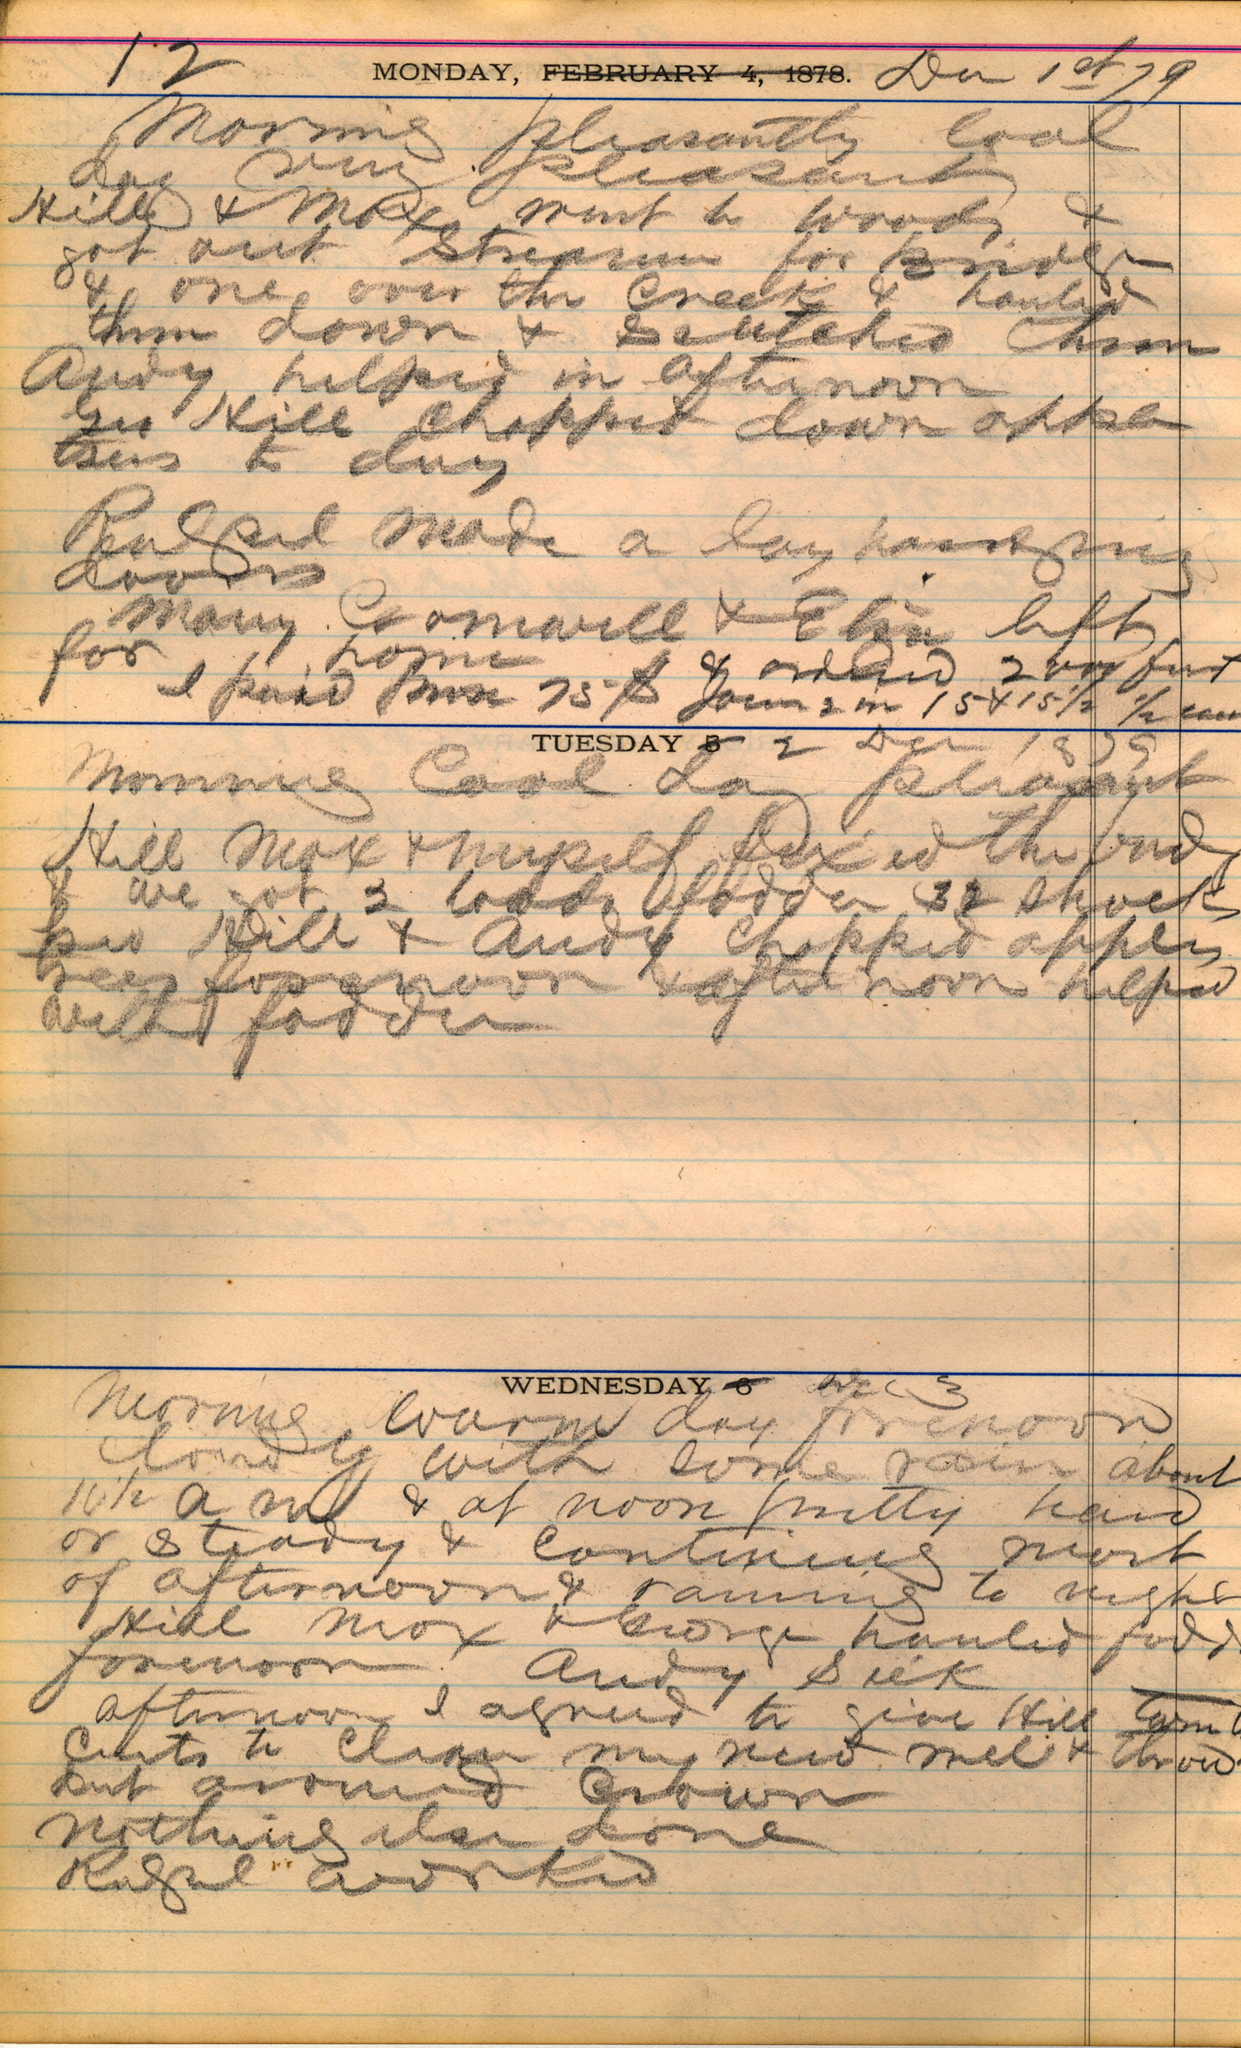 12
MONDAY, FEBRUARY 4, 1878. Dec 1st 79
Morning pleasantly cool
day very pleasant
Hill & Max went to woods &
got out for Bridge
& one over the Creek & hauled
them down & Scutched them
Andy helped in afternoon
Geo Hill Chopped down apple
trees to day
made a day hanging
doors
Mary Cromwell & left
for home & ordered 2
I paid 75 $ 2 in 15 & 15 1/2 1/2
TUESDAY 5 2 Dec 1879
Morning Cool day pleasant
Hill Max & myself fixed the
& we got 3 loads fodder 32 shocks
Geo Hill & Andy Chopped apple
trees forenoon & afternoon helped
with fodder
WEDNESDAY 6 Dec 3
Morning warm day forenoon
cloudy with some rain about
10 1/2 a m & at noon pretty hard
or steady & continuing most
of afternoon & raining to night
Hill Max & George hauled fodd
forenoon Andy Sick
afternoon I agreed to give Hill
cents to clean my new well & throw
dirt around Crown
nothing else done
worked